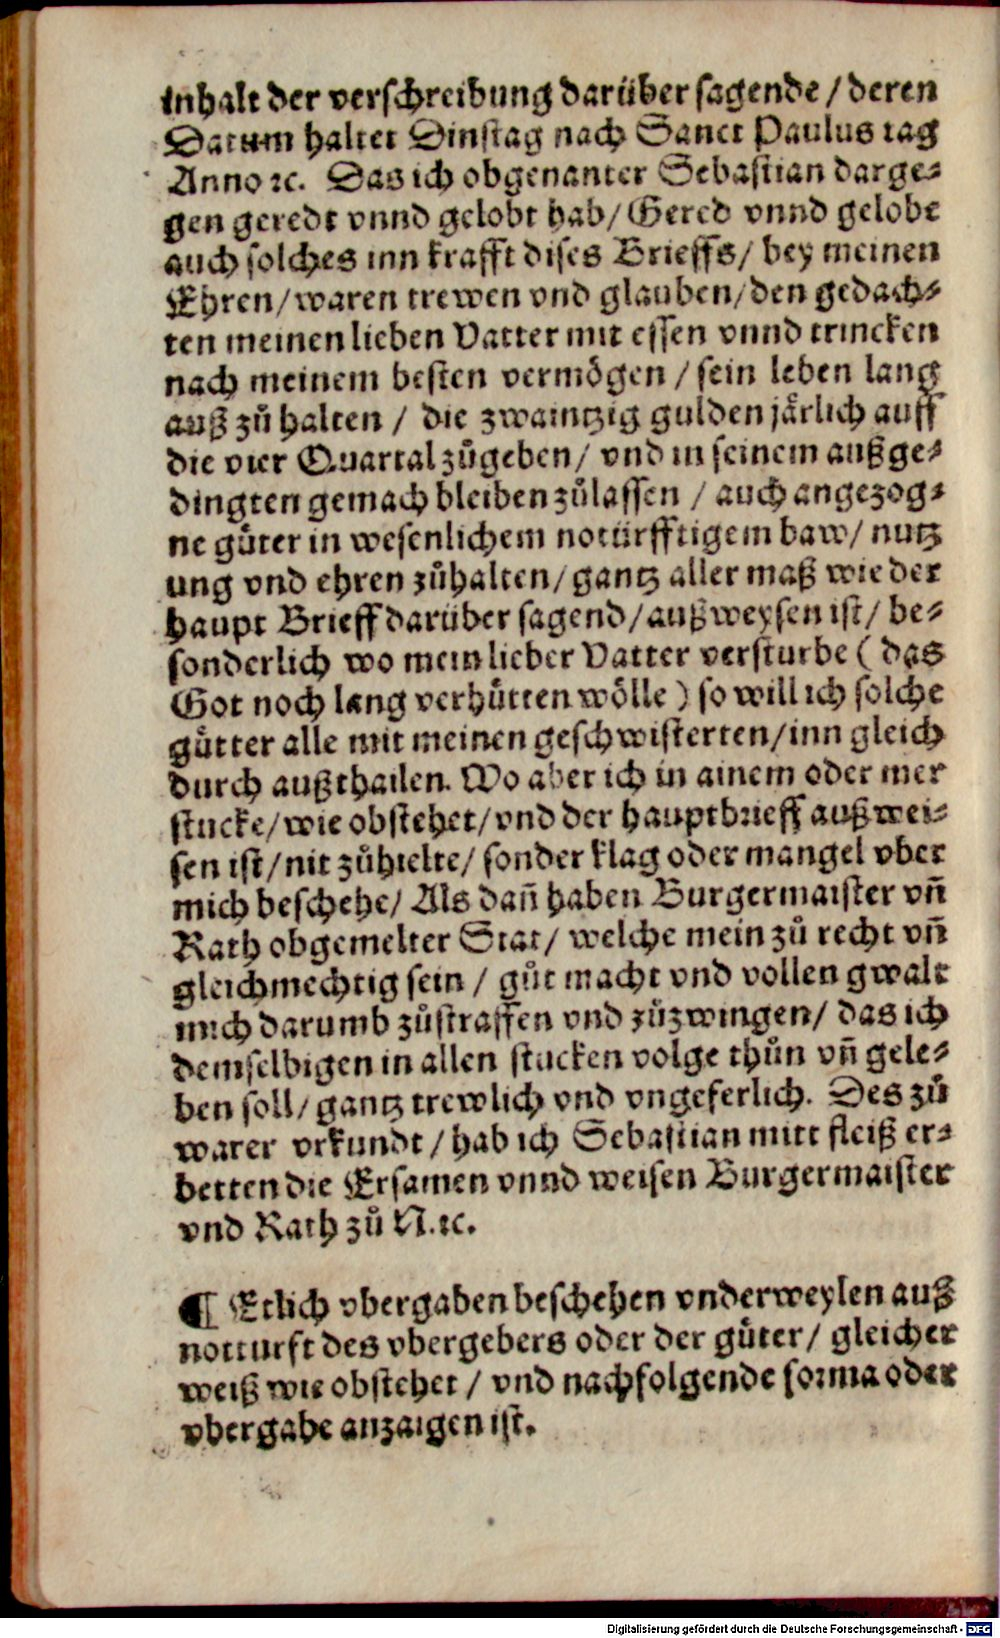 inhalt der verschreibung darüber sagende / deren
Datum haltet Dinstag nach Sanct Paulus tag
Anno ꝛc. Das ich obgenanter Sebastian darge⸗
gen geredt vnnd gelobt hab / Gered vnnd gelobt
auch solches inn krafft dises Brieffs / bey meinen
Ehren / waren trewen vnd glauben / den gedach⸗
ten meinen lieben Vatter mit essen vnnd trincken
nach meinem besten vermögen / sein leben lang
auß zů halten / die zwaintzig gulden järlich auff
die vier Quartal zůgeben / vnd in seinem außge⸗
dingten gemach bleiben zůlassen / auch angezog⸗
ne gůter in wesenlichem notürfftigem baw / nutz
ung vnd ehren zůhalten / gantz aller maß wie der
haupt Brieff darüber sagend / außweysen ist / be⸗
sonderlich wo mein lieber Vatter versturbe ( das
Got noch lang verhůtten wölle ) so will ich solche
gůtter alle mit meinen geschwisterten / inn gleich
durch außthailen. Wo aber ich in ainem oder mer
stucke / wie obstehet / vnd der hauptbrieff außwei⸗
sen ist / nit zůhielte / sonder klag oder mangel vber
mich beschehe / Als dañ haben Burgermaister vñ
Rath obgemelter Stat / welche mein zů recht vñ
gleichmechtig sein / gůt macht vnd vollen gwalt
mich darumb zůstraffen vnd zůzwingen / das ich
demselbigen in allen stucken volge thůn vñ gele⸗
ben soll / gantz trewlich vnd vngeferlich. Des zů
warer vrkundt / hab ich Sebastian mitt fleiß er⸗
betten die Ersamen vnnd weisen Burgermaister
vnd Rath zů N. ꝛc.
¶ Etlich vbergaben beschehen vnderweylen auß
notturft des vbergebers oder der gůter / gleicher
weiß wie obstehet / vnd nachfolgende forma oder
vbergabe anzaigen ist.
Digitalisierung gefördert durch die Deutsche Forschungsgemeinschaft - DFG